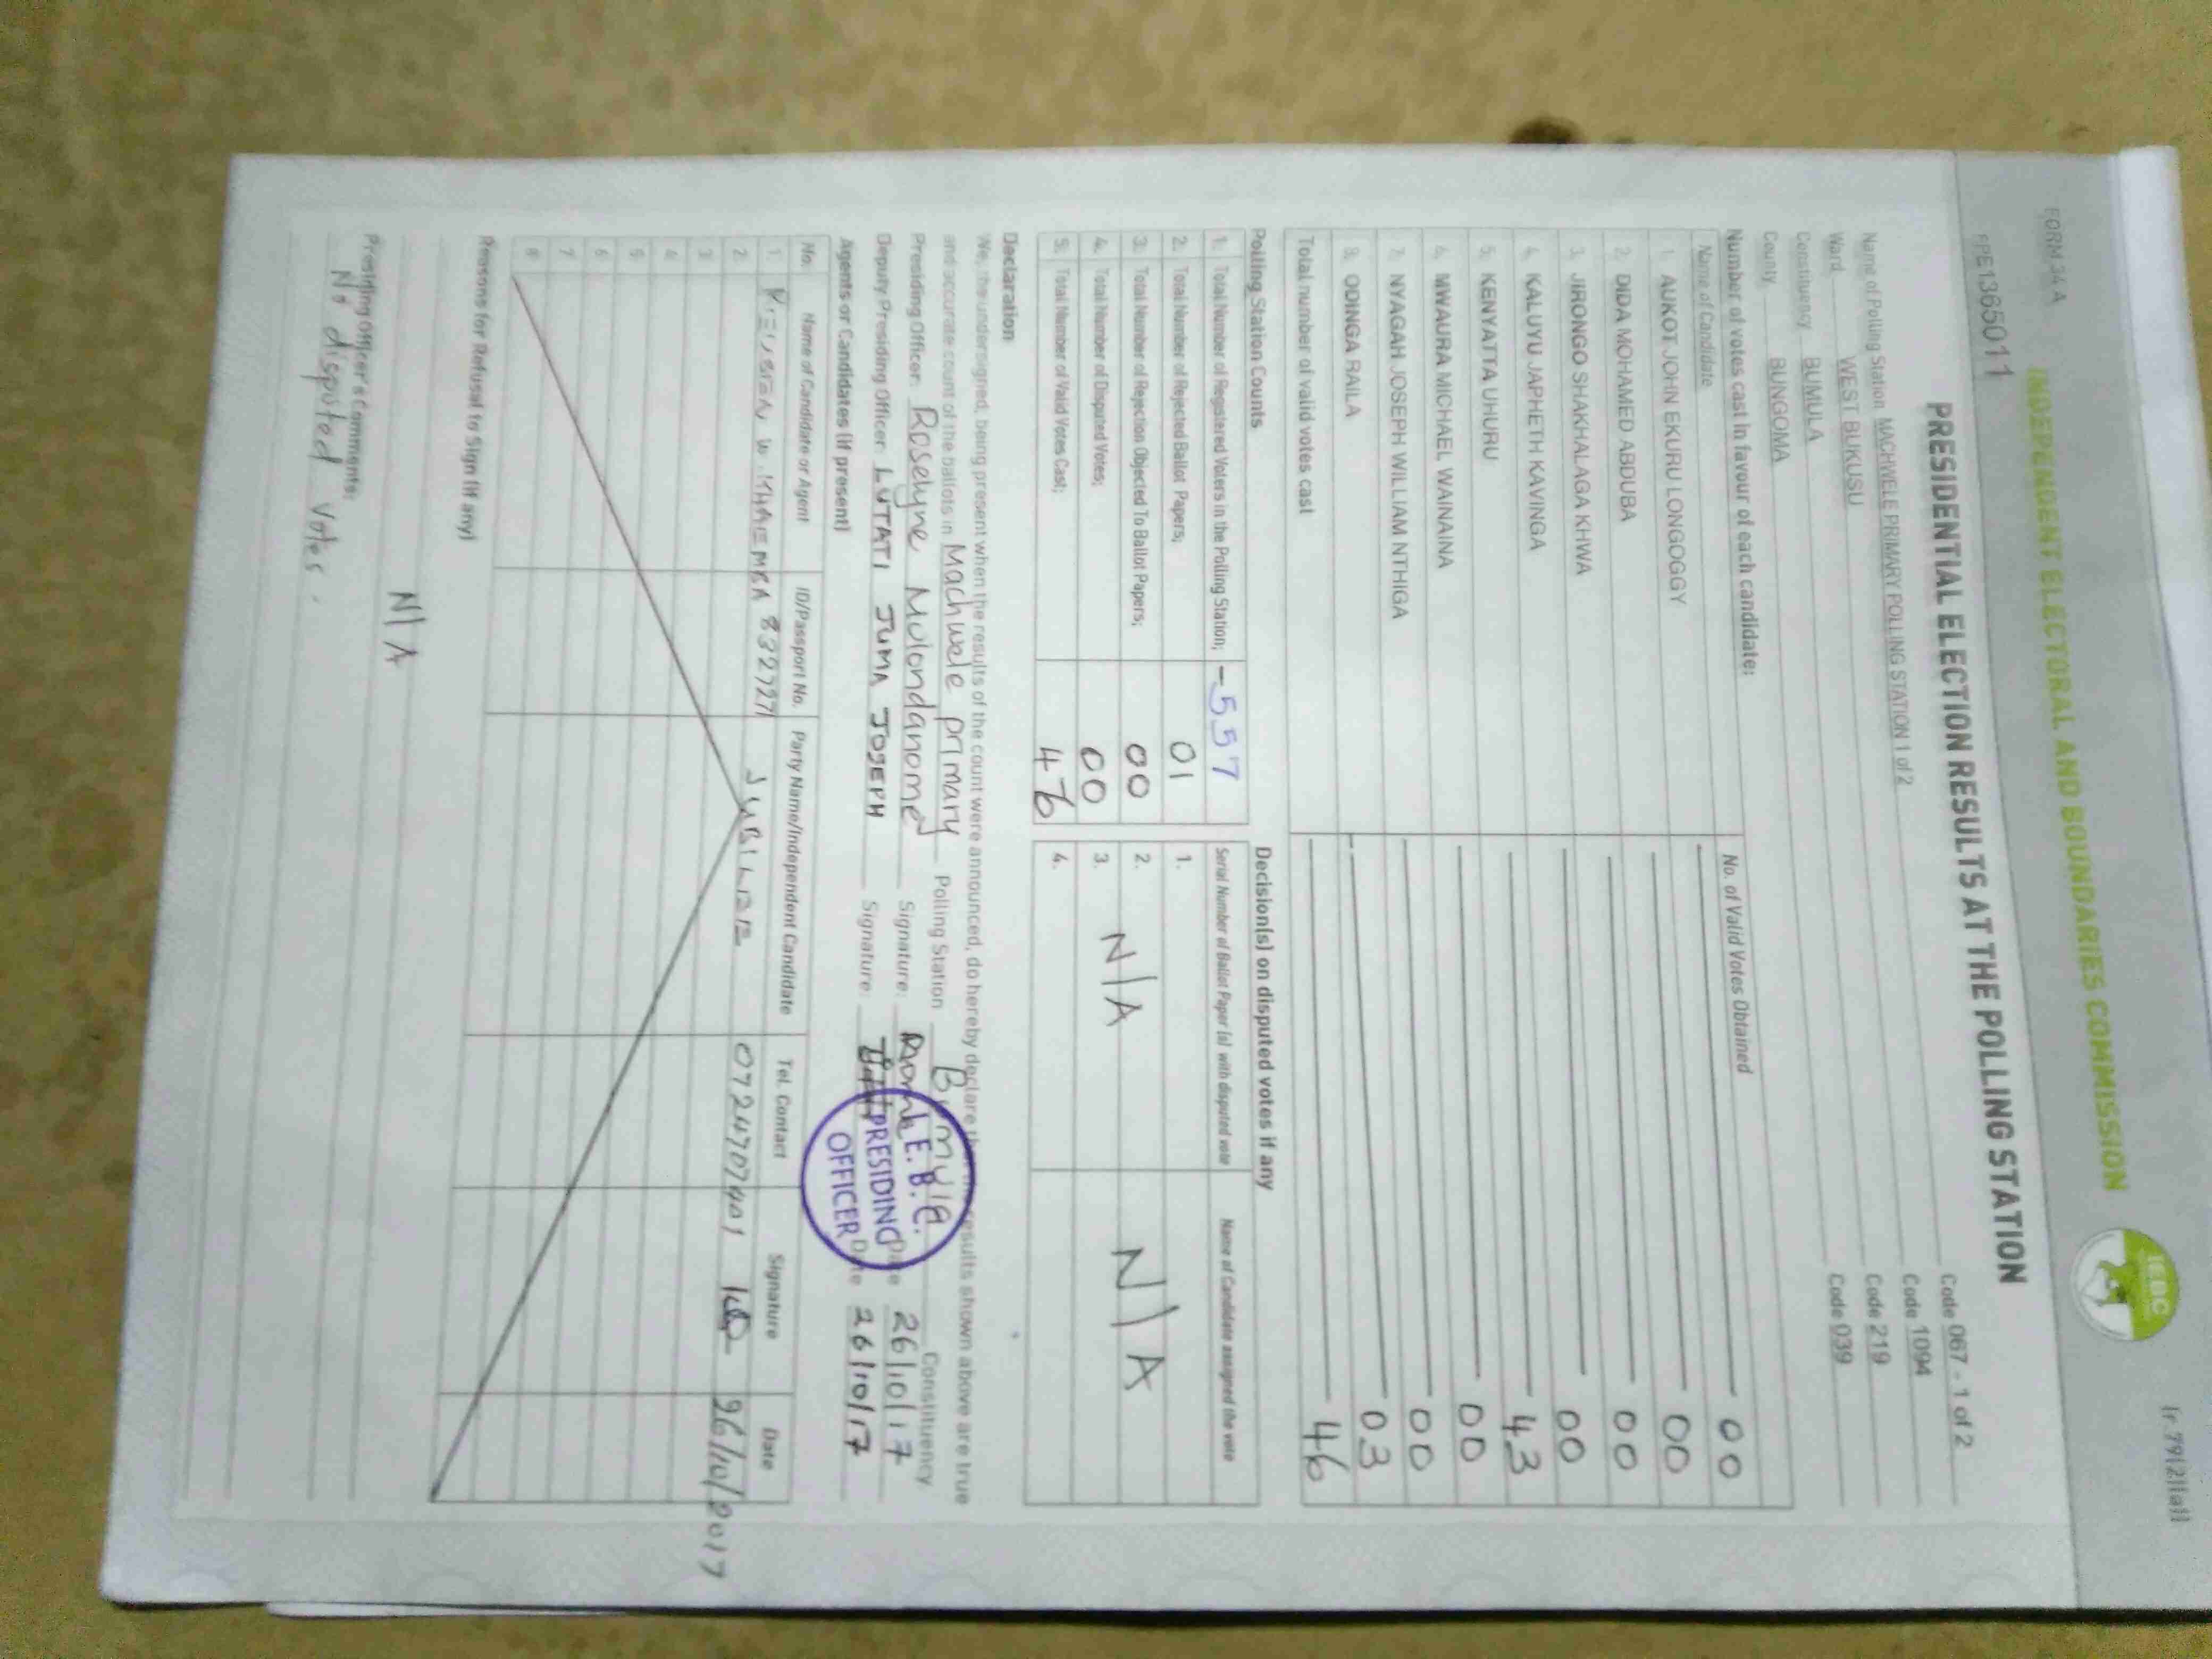 FORM 34 A
[r.79(2)(a)]
INDEPENDENT ELECTORAL AND BOUNDARIES COMMISSION
IEBC
PE1365011
PRESIDENTIAL ELECTION RESULTS AT THE POLLING STATION
Name of Polling Station MACHWELE PRIMARY POLLING STATION 1 of 2 Code 067 - 1 of 2
Ward WEST BUKUSU Code 1094
Constituency BUMULA Code 219
County BUNGOMA Code 039
Number of votes cast in favour of each candidate:
Name of Candidate No. of Valid Votes Obtained
1. AUKOT JOHN EKURU LONGOGGY 00
2. DIDA MOHAMED ABDUBA 00
3. JIRONGO SHAKHALAGA KHWA 00
4. KALUYU JAPHETH KAVINGA 00
5. KENYATTA UHURU 43
6. MWAURA MICHAEL WAINAINA 00
7. NYAGAH JOSEPH WILLIAM NTHIGA 00
8. ODINGA RAILA 03
Total number of valid votes cast 46
Polling Station Counts
1. Total Number of Registered Voters in the Polling Station; - 557
2. Total Number of Rejected Ballot Papers; 01
3. Total Number of Rejection Objected To Ballot Papers; 00
4. Total Number of Disputed Votes; 00
5. Total Number of Valid Votes Cast; 46
Decision(s) on disputed votes if any
Serial Number of Ballot Paper (s) with disputed vote Name of Candidate assigned the vote
1.
2.
3. N/A N/A
4.
Declaration
We, the undersigned, being present when the results of the count were announced, do hereby declare that the results shown above are true
and accurate count of the ballots in Machwele primary Polling Station Bumula Constituency
Presiding Officer: Roselyne Mulondanome Signature: Date 26/10/17
Deputy Presiding Officer: LUTATI JUMA JOSEPH Signature: Date 26/10/17
I.E.B.C.
PRESIDING
OFFICER
Agents or Candidates (if present)
No. Name of Candidate or Agent ID/Passport No. Party Name/Independent Candidate Tel. Contact Signature Date
1. W. KHAEMBA 8327271 JUBILEE 0724707401 26/10/2017
2.
3
4
5
6
7
8
Reasons for Refusal to Sign (if any)
N/A
Presiding Officer's Comments:
No disputed votes.